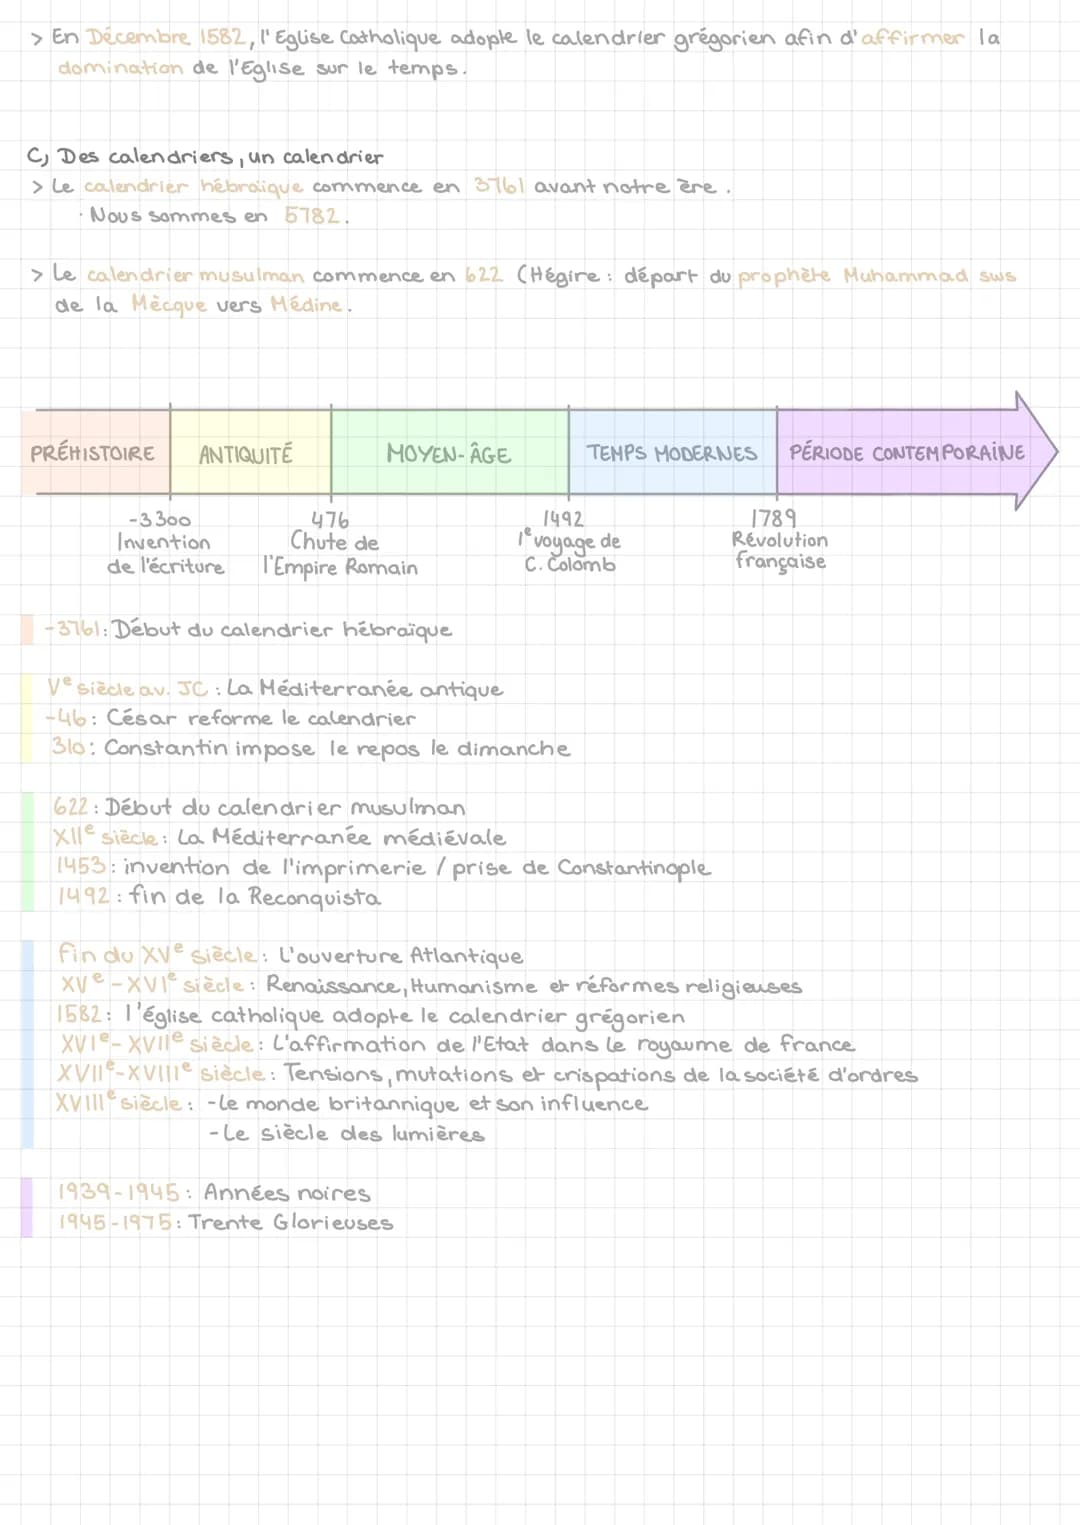 > En Décembre 1582, l'Eglise Catholique adopte le calendrier grégorien afin d'affirmer la
domination de l'Eglise sur le temps.
C) Des calendriers, un calendrier
> Le calendrier hébraïque commence en 3761 avant notre ère.
· Nous sommes en 5782.
> Le calendrier musulman commence en 622 (Hégire : départ du prophète Muhammad sws
de la Mècque vers Médine.
PRÉHISTOIRE ANTIQUITÉ MOYEN-ÂGE TEMPS MODERNES PÉRIODE CONTEMPORAINE
-3300 476 1492 1789
Invention Chute de 1e voyage de Révolution
de l'écriture l'Empire Romain C. Colomb française
-3761: Début du calendrier hébraïque
Ve siècle av. JC : La Méditerranée antique
-46: César reforme le calendrier
310: Constantin impose le repos le dimanche
622: Début du calendrier musulman
XIIe siècle: La Méditerranée médiévale
1453: invention de l'imprimerie / prise de Constantinople
1492: fin de la Reconquista
Fin du XVe siècle: L'ouverture Atlantique
XVe-XVIe siècle: Renaissance, Humanisme et réformes religieuses
1582: l'église catholique adopte le calendrier grégorien
XVIe-XVIIe siècle: L'affirmation de l'Etat dans le royaume de france
XVIIe-XVIIIe siècle: Tensions, mutations et crispations de la société d'ordres
XVIIIe siècle: -le monde britannique et son influence
-Le siècle des lumières
1939-1945: Années noires
1945-1975: Trente Glorieuses